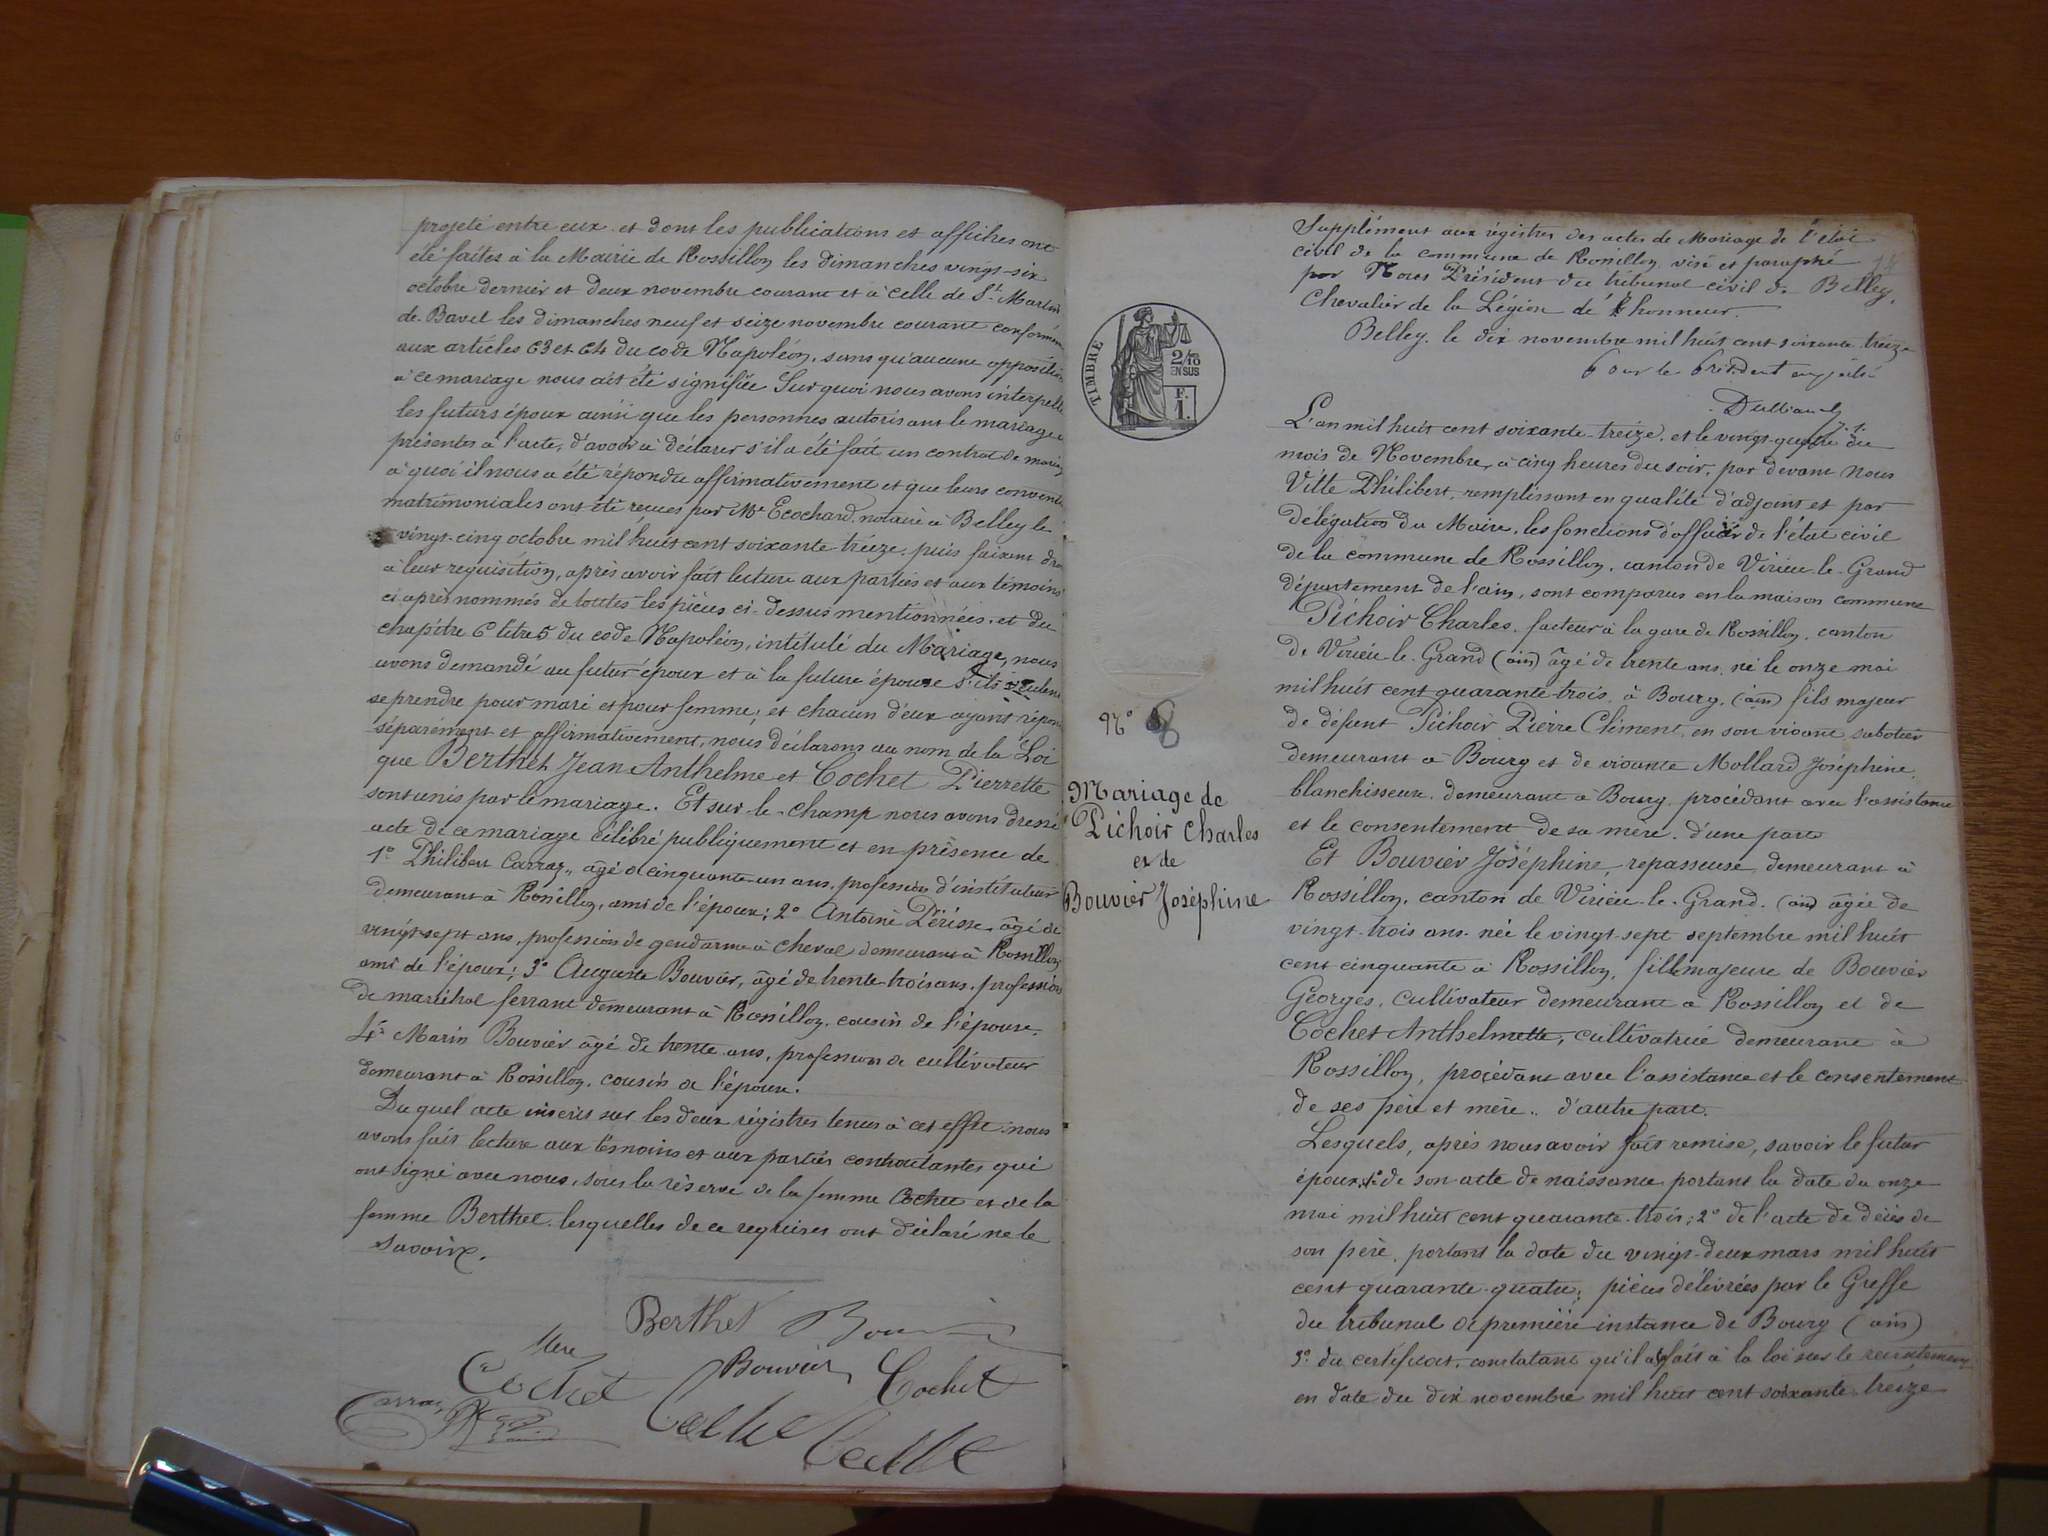 projeté entre eux et dont les publications et affiches ont
été faites à la Mairie de Rossillon les dimanches vingt-six
octobre dernier et deux novembre courant et à celle de St. Martin
de Bavel les dimanches neuf et seize novembre courant conformém
aux articles 63 et 64 du code Napoléon, sans qu'aucune opposition
à ce mariage nous ait été signifiée Sur quoi nous avons interpellé
les futurs époux ainsi que les personnes autorisant le mariage
présentes à l'acte, d'avoir à déclarer s'il a été fait un contrat de mariage
a quoi il nous a été répondu affirmativement et que leurs convent
matrimoniales ont été reçues par Me Ecochard, notaire à Belley le
vingt-cinq octobre mil huit cent soixante treize, puis faisant droit
à leur requisition, après avoir fait lecture aux parties et aux témoins
ci après nommés de toutes les pièces ci-dessus mentionnées, et du
chapitre 6 titre 5 du code Napoléon, intitulé du Mariage, nous
avons demandé au futur époux et à la future épouse s'ils veulent
se prendre pour mari et pour femme; et chacun d'eux ayant répon
séparément et affirmativement, nous déclarons au nom de la Loi
que Berthet Jean Anthelme et Cochet Pierrette
sont unis par le mariage. Et sur-le-champ nous avons dressé
acte de ce mariage célébré publiquement et en présence de
1º Philibert Carraz, âgé de cinquante-un ans, profession d'instituteur
demeurant à Rossillon, ami de l'époux; 2º Antoine Périsse, âgé de
vingt-sept ans, profession de gendarme à cheval demeurant à Rossillon
ami de l'époux; 3º Auguste Bouvier, âgé de trente-trois ans, profession
de maréchal ferrant demeurant à Rossillon, cousin de l'épouse
4º Marin Bouvier âgé de trente ans, profession de cultivateur
demeurant à Rossillon, cousin de l'épouse.
Du quel acte inscrit sur les deux régistres tenus à cet effet nous
avons fait lecture aux témoins et aux parties contractantes qui
ont signé avec nous, sous la réserve de la femme Cochet et de la
femme Berthet lesquelles de ce requises ont déclaré ne le
savoir.
Berthet
Cochet Bouvier Cochet
Carraz
N° 8
Mariage de
Pichoir Charles
et de
Bouvier Joséphine
TIMBRE
2/10
EN SUS
F.
1.
Supplément aux régistres des actes de Mariage de l'état
civil de la commune de Rossillon, visé et paraphé
par Nous Président du tribunal civil de Belley,
Chevalier de la Légion de l'honneur.
Belley, le dix novembre mil huit cent soixante treize
Pour le Président empêché
L'an mil huit cent soixante-treize, et le vingt-quatre du
mois de Novembre, à cinq heures du soir, par devant Nous
Vitte Philibert, remplissant en qualité d'adjoint et par
délégation du Maire, les fonctions d'officier de l'état civil
de la commune de Rossillon, canton de Virieu-le-Grand
département de l'ain, sont comparus en la maison commune
Pichoir Charles, facteur à la gare de Rossillon, canton
de Virieu-le-Grand (ain) âgé de trente ans, né le onze mai
mil huit cent quarante-trois, à Bourg, (ain) fils majeur
de défunt Pichoir Pierre Clément, en son vivant sabotier
demeurant à Bourg et de vivante Mollard Joséphine,
blanchisseuse, demeurant à Bourg, procédant avec l'assistance
et le consentement de sa mère, d'une part
Et Bouvier Joséphine, repasseuse, demeurant à
Rossillon, canton de Virieu-le-Grand (ain) âgée de
vingt-trois ans née le vingt-sept septembre mil huit
cent cinquante à Rossillon, fille majeure de Bouvier
Georges, cultivateur demeurant à Rossillon et de
Cochet Anthelmette, cultivatrice demeurant à
Rossillon, procédant avec l'assistance et le consentement
de ses père et mère, d'autre part.
Lesquels, après nous avoir fait remise, savoir le futur
époux, 1º de son acte de naissance portant la date du onze
mai mil huit cent quarante-trois; 2º de l'acte de décès de
son père, portant la date du vingt-deux mars mil huit
cent quarante-quatre; pièces délivrées par le Greffe
du tribunal de première instance de Bourg (ain)
3º du certificat, constatant qu'il a fait à la loi sur le recrutement
en date du dix novembre mil huit cent soixante treize